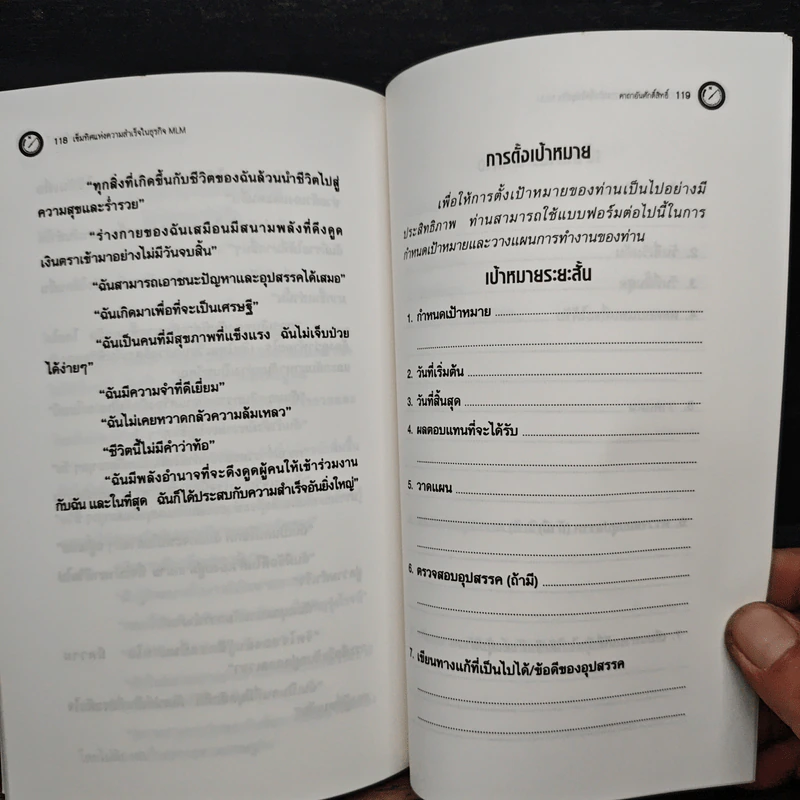 118 เข็มทิศแห่งความสำเร็จในธุรกิจ MLM
“ทุกสิ่งที่เกิดขึ้นกับชีวิตของฉันล้วนนำชีวิตไปสู่
ความสุขและร่ำรวย”
“ร่างกายของฉันเสมือนมีสนามพลังที่ดึงดูด
เงินตราเข้ามาอย่างไม่มีวันจบสิ้น”
“ฉันสามารถเอาชนะปัญหาและอุปสรรคได้เสมอ”
“ฉันเกิดมาเพื่อที่จะเป็นเศรษฐี”
“ฉันเป็นคนที่มีสุขภาพที่แข็งแรง ฉันไม่เจ็บป่วย
ได้ง่ายๆ”
“ฉันมีความจำที่ดีเยี่ยม”
“ฉันไม่เคยหวาดกลัวความล้มเหลว”
“ชีวิตนี้ไม่มีคำว่าท้อ”
“ฉันมีพลังอำนาจที่จะดึงดูดผู้คนให้เข้าร่วมงาน
กับฉัน และในที่สุด ฉันก็ได้ประสบกับความสำเร็จอันยิ่งใหญ่”
คาถาอันศักดิ์สิทธิ์ 119
การตั้งเป้าหมาย
เพื่อให้การตั้งเป้าหมายของท่านเป็นไปอย่างมี
ประสิทธิภาพ ท่านสามารถใช้แบบฟอร์มต่อไปนี้ในการ
กำหนดเป้าหมายและวางแผนการทำงานของท่าน
เป้าหมายระยะสั้น
1. กำหนดเป้าหมาย
2. วันที่เริ่มต้น
3. วันที่สิ้นสุด
4. ผลตอบแทนที่จะได้รับ
5. วาดแผน
6. ตรวจสอบอุปสรรค (ถ้ามี)
7. เขียนทางแก้ที่เป็นไปได้/ข้อดีของอุปสรรค